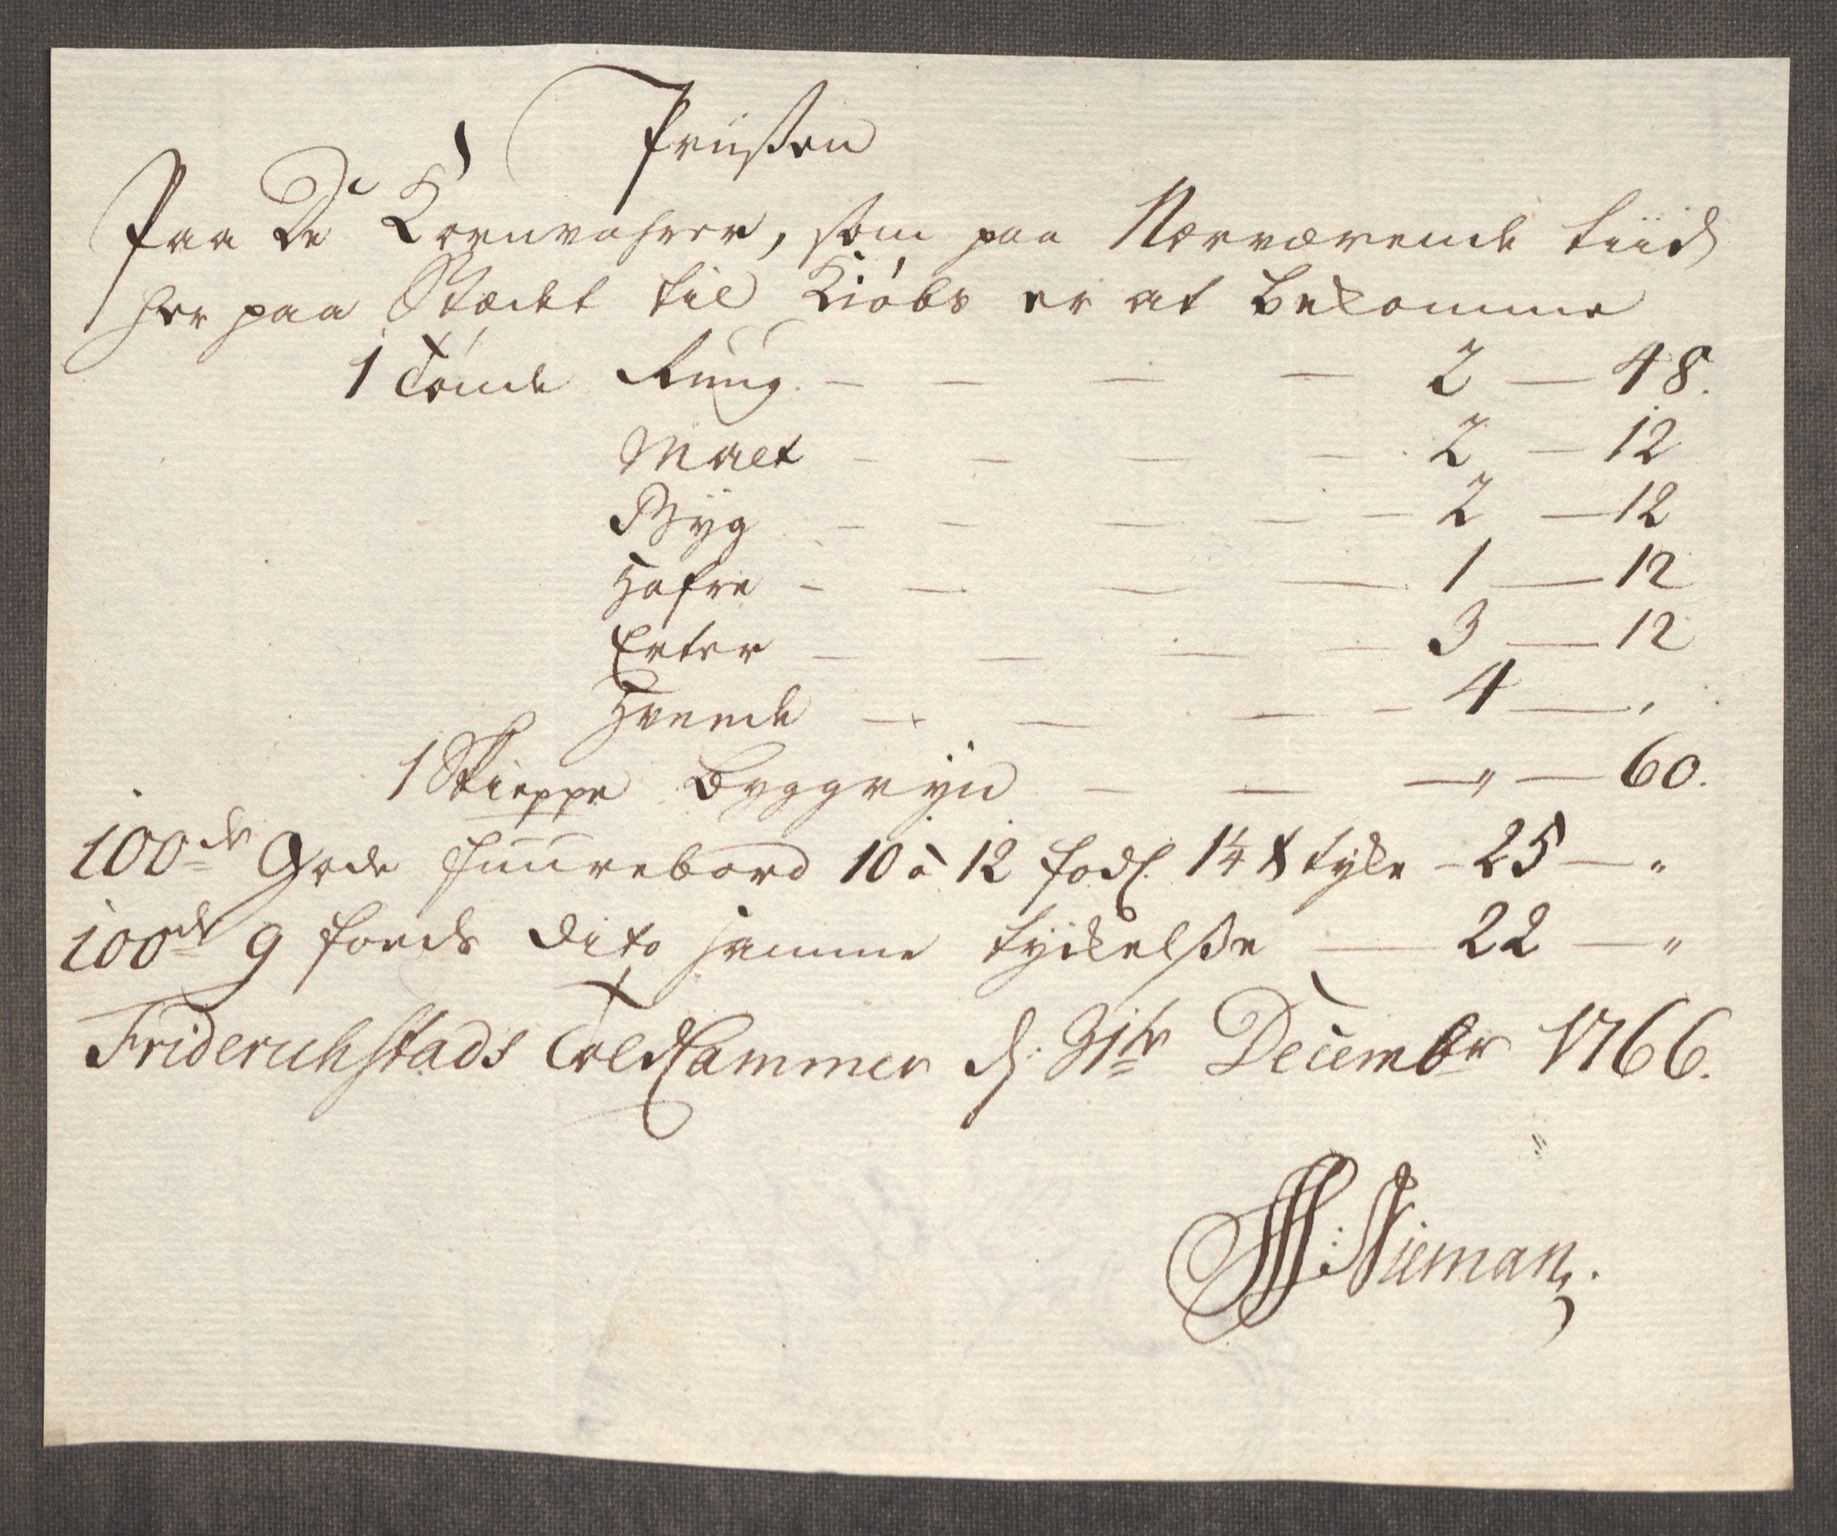 Priisen
Paa De Kornvahrer, som paa Nærværende tiid
her paa Stædet til Kiøbs er at bekomme
1 Tønde Rung. — — — — 2 — 48.
Malt — — — — 2 — 12
Byg — — — — — 2 — 12
Hafre — — — — 1 — 12
Erter — — — — — 3 — 12
Hveede — — — — 4 — „
1 Skieppe Byggryn — — — „ — 60.
100de Gode Fuurebord 10 à 12 fods 1¼ tyke — 25 — „
100de 9 foeds dito samme tyckelsse — 22 — „
Friderichstads Told Cammer d: 31te Decembr 1766.
Nieman